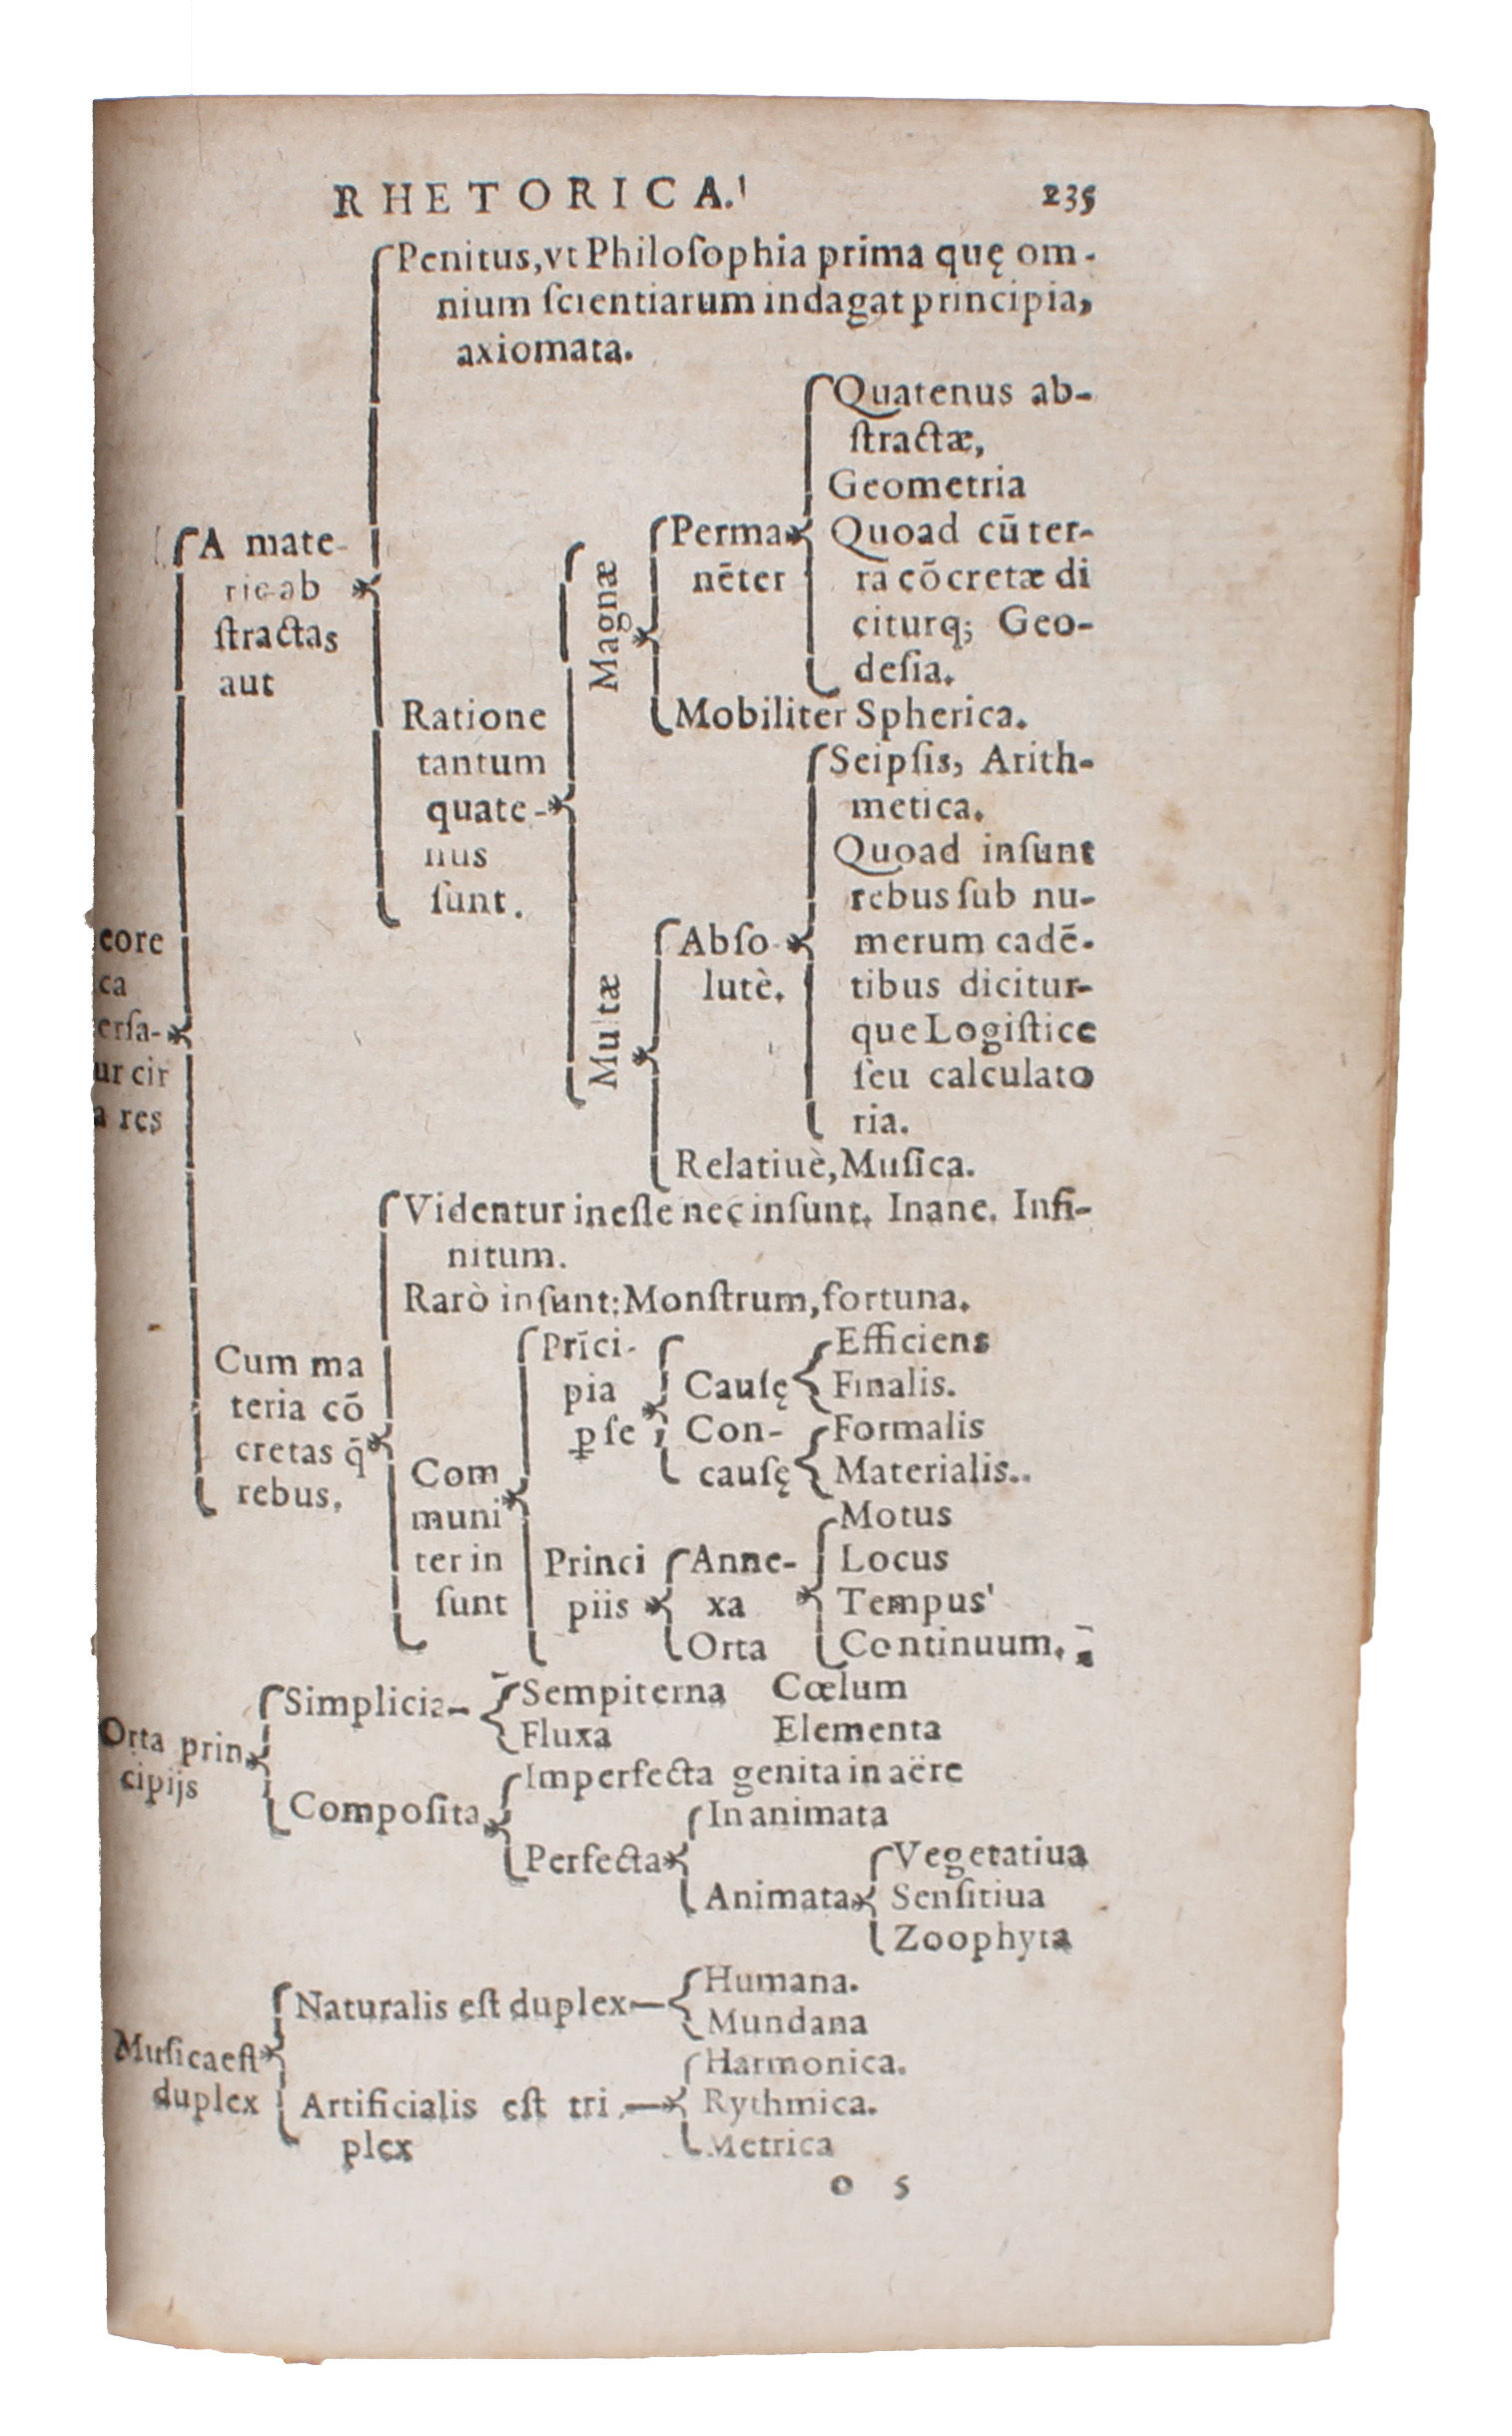 RHETORICA. 235
Penitus, vt Philoſophia prima quę om-
nium ſcientiarum indagat principia,
axiomata.
A mate-
rie ab
ſtractas
aut
Ratione
tantum
quate-
nus
ſunt.
Magnæ
Perma
nēter
Quatenus ab-
ſtractæ,
Geometria
Quoad cū ter-
rā cōcretæ di
citurq; Geo-
deſia.
Mobiliter Spherica.
Multæ
Abſo-
lutè.
Seipſis, Arith-
metica.
Quoad inſunt
rebus ſub nu-
merum cadē-
tibus dicitur-
que Logiſtice
ſeu calculato
ria.
Relatiuè, Muſica.
eore
ca
erſa-
ur cir
a res
Cum ma
teria cō
cretas q̄
rebus.
Videntur ineſſe nec inſunt. Inane. Infi-
nitum.
Rarò inſunt: Monſtrum, fortuna.
Com
muni
ter in
ſunt
Prīci-
pia
ꝑ ſe
Cauſę
Efficiens
Finalis.
Con-
cauſę
Formalis
Materialis..
Princi
piis
Anne-
xa
Orta
Motus
Locus
Tempus
Continuum.
Orta prin
cipijs
Simplicia-
Sempiterna Cœlum
Fluxa Elementa
Compoſita
Imperfecta genita in aëre
Perfecta
Inanimata
Animata
Vegetatiua
Senſitiua
Zoophyta
Muſica eſt
duplex
Naturalis eſt duplex—
Humana.
Mundana
Artificialis eſt tri
plex
Harmonica.
Rythmica.
Metrica
o 5